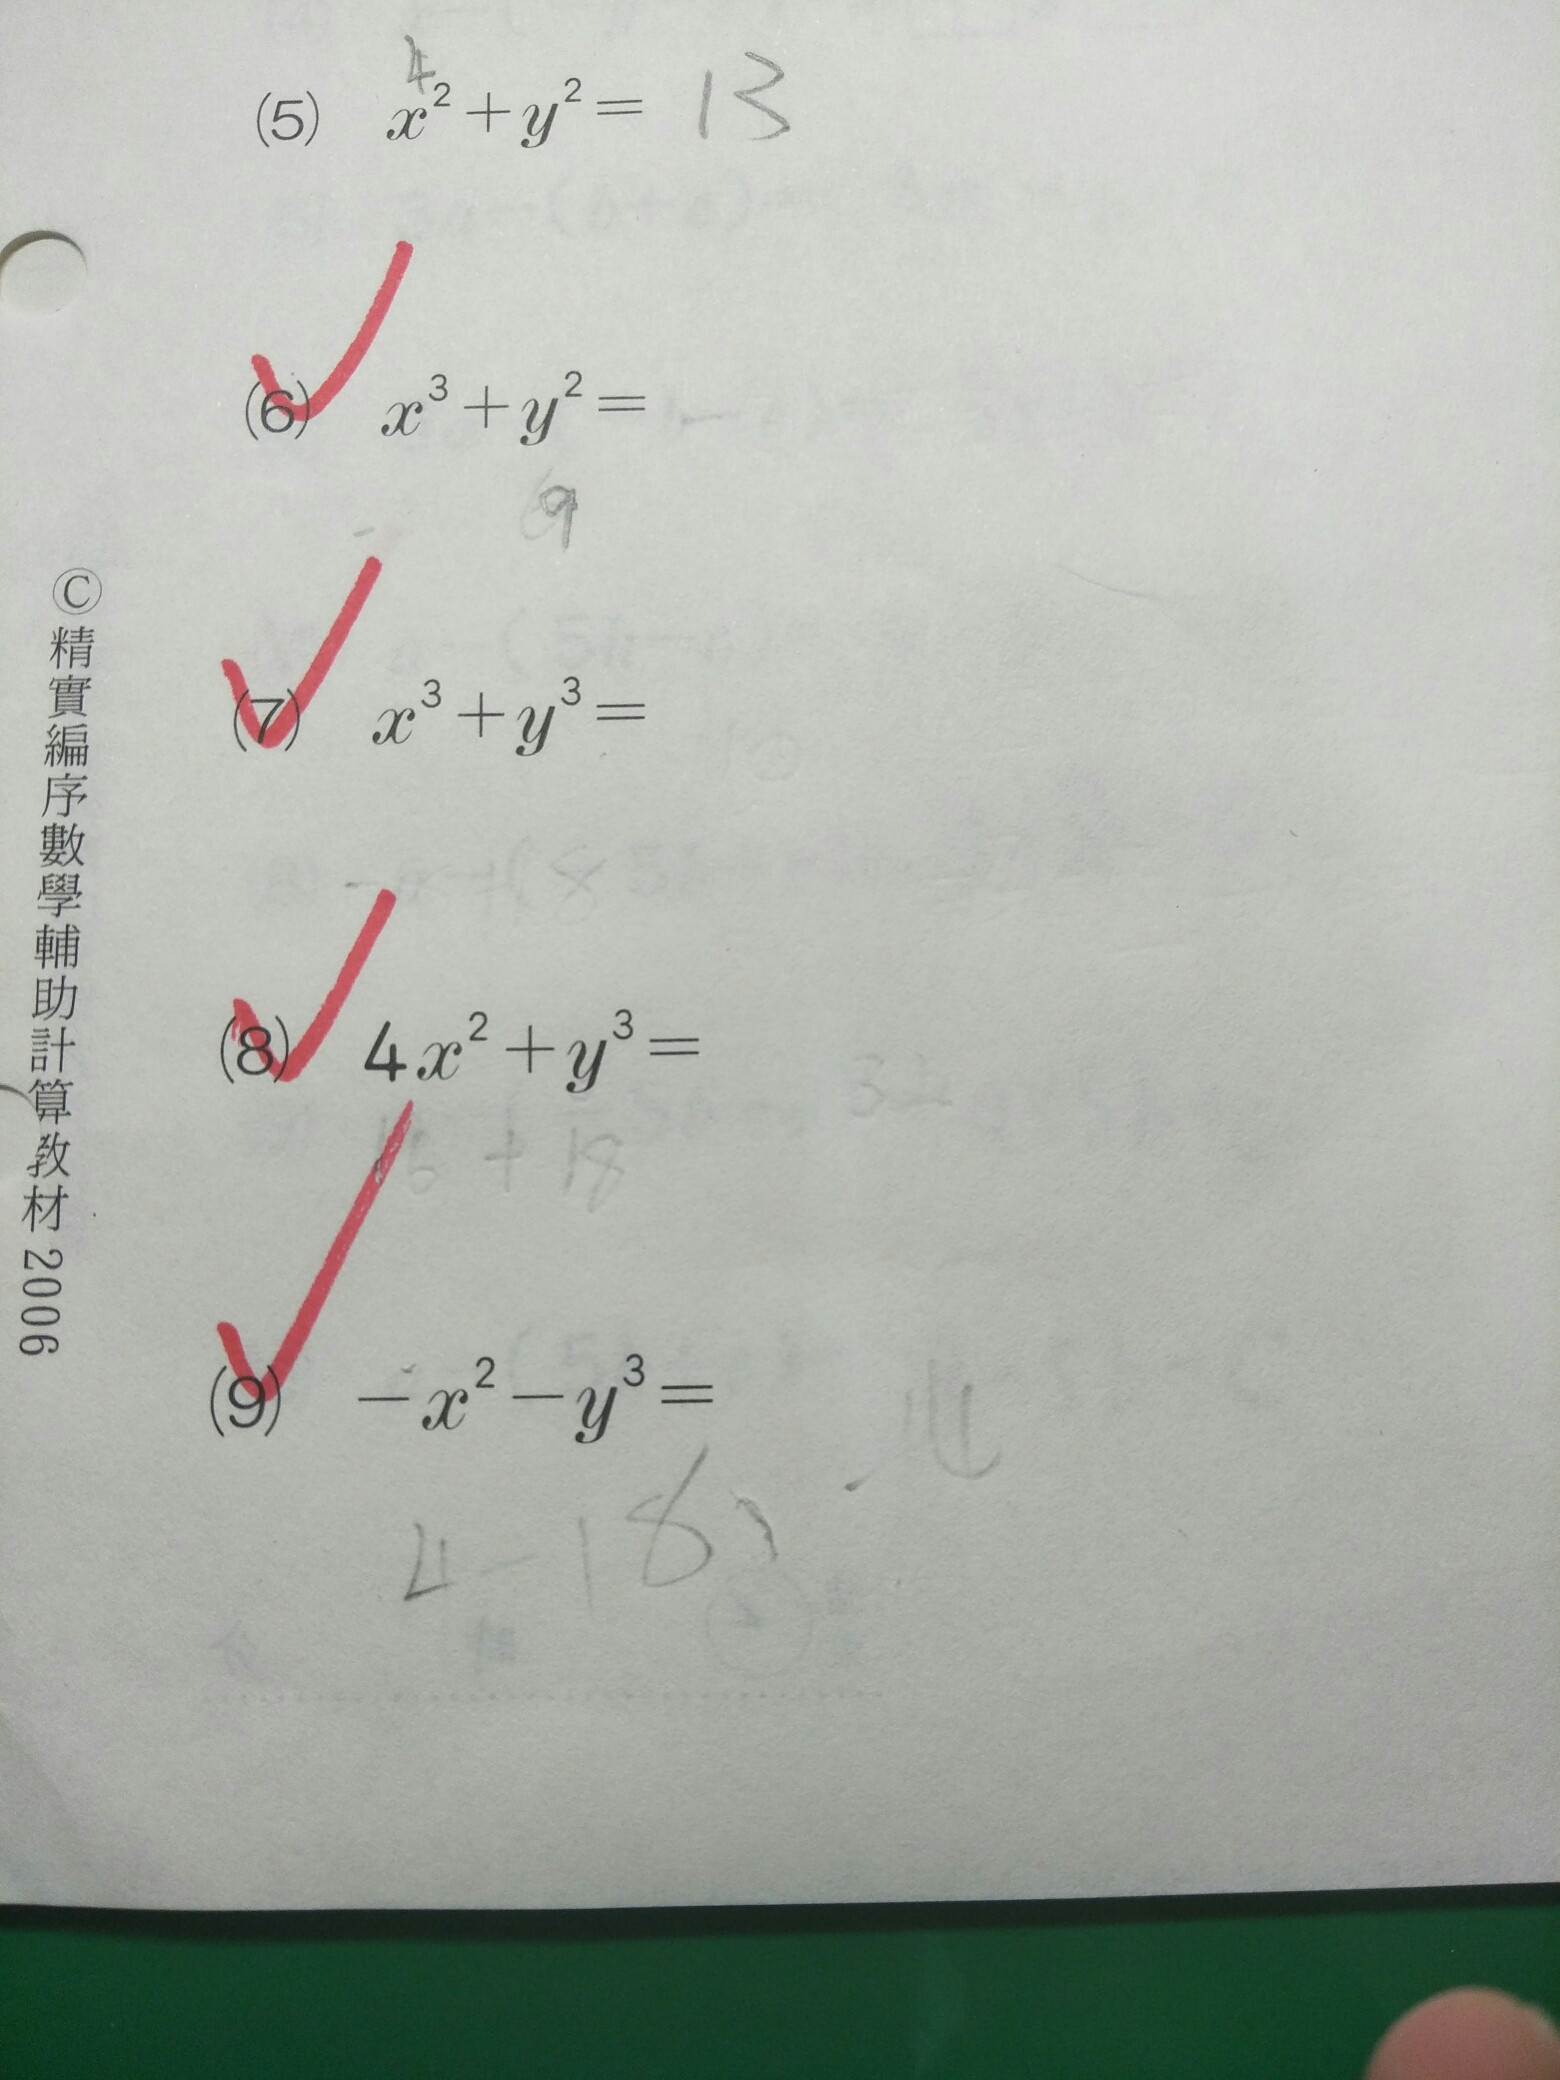 4
(5) x² + y² = 13
(6) x³ + y² =
9
(7) x³ + y³ =
(8) 4x² + y³ =
16 + 18
(9) −x² − y³ =
4 - 18
Ⓒ精實編序數學輔助計算教材 2006